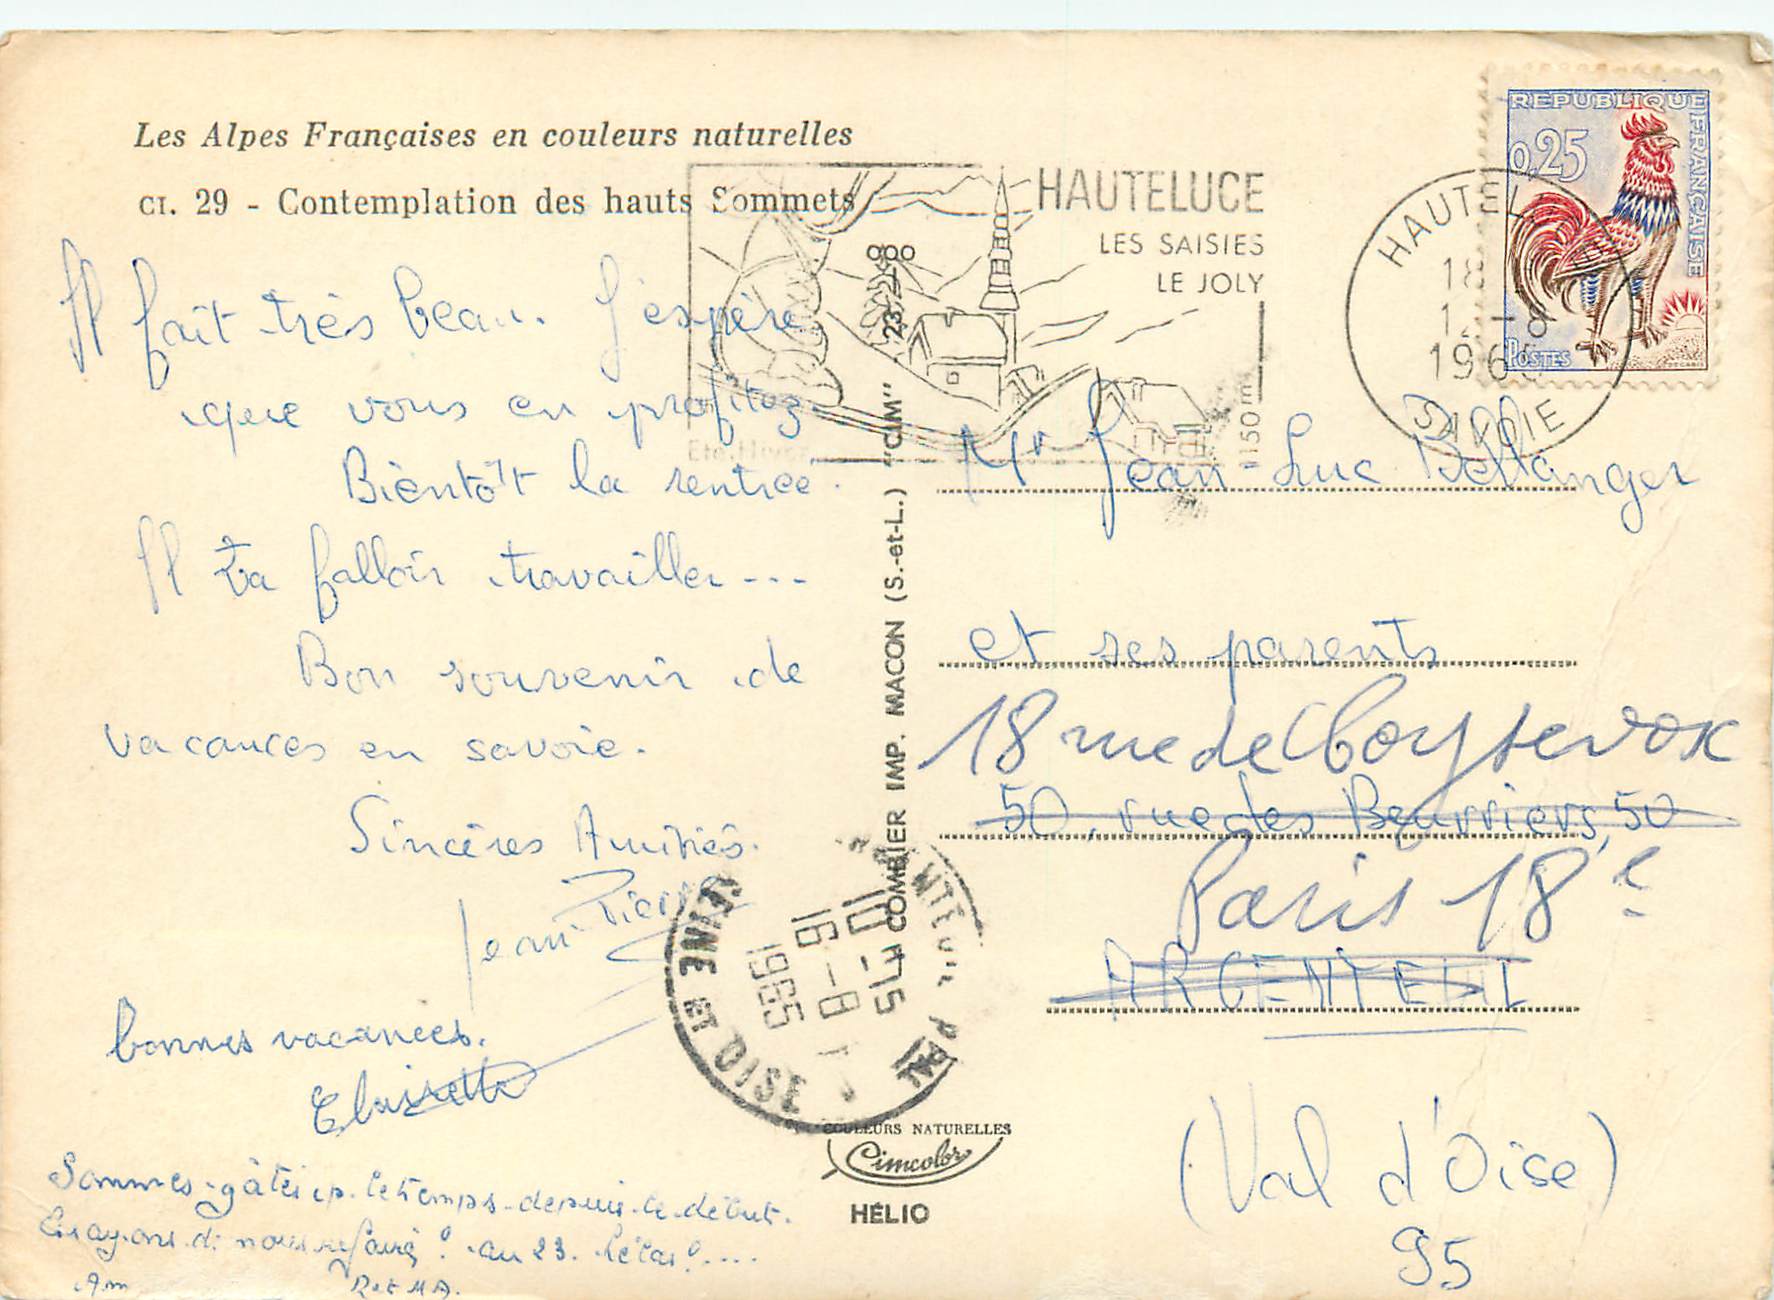 Les Alpes Françaises en couleurs naturelles
CI. 29 - Contemplation des hauts Sommets
Il fait très beau. J'espère
que vous en profitez.
Bientôt la rentrée.
Il va falloir travailler ---
Bon souvenir de
vacances en savoie.
Sincères Amitiés.
Jean-Pierre
bonnes vacances.
Sommes gâtés p. le temps depuis le début.
Essayons de nous refaire! au 23. hélas!....
HAUTELUCE
LES SAISIES
LE JOLY
1150 m
Eté. Hiver
REPUBLIQUE FRANÇAISE
0,25
POSTES
HAUTEL
18
12 -8
1965
SAVOIE
Mr Jean-Luc Bellanger
et ses parents
18 rue de Coysevox
50, rue des Beurriers, 50
Paris 18e
ARGENTEUIL
(Val d'Oise)
95
COMBIER IMP. MACON (S.-et-L.) "CIM"
10 -15
16 -8
1965
SEINE ET OISE
COULEURS NATURELLES
Cimcolor
HÉLIO